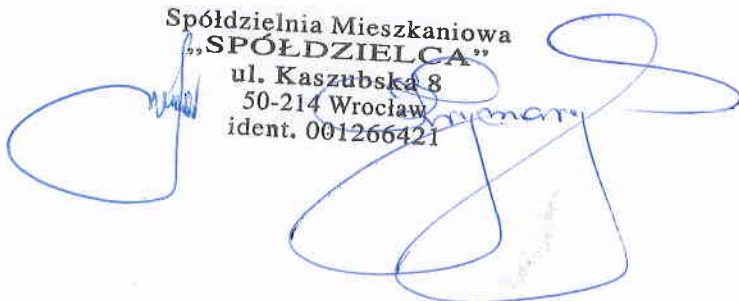 Spółdzielnia Mieszkaniowa
„SPÓŁDZIELCA”
ul. Kaszubska 8
50-214 Wrocław
ident. 001266421